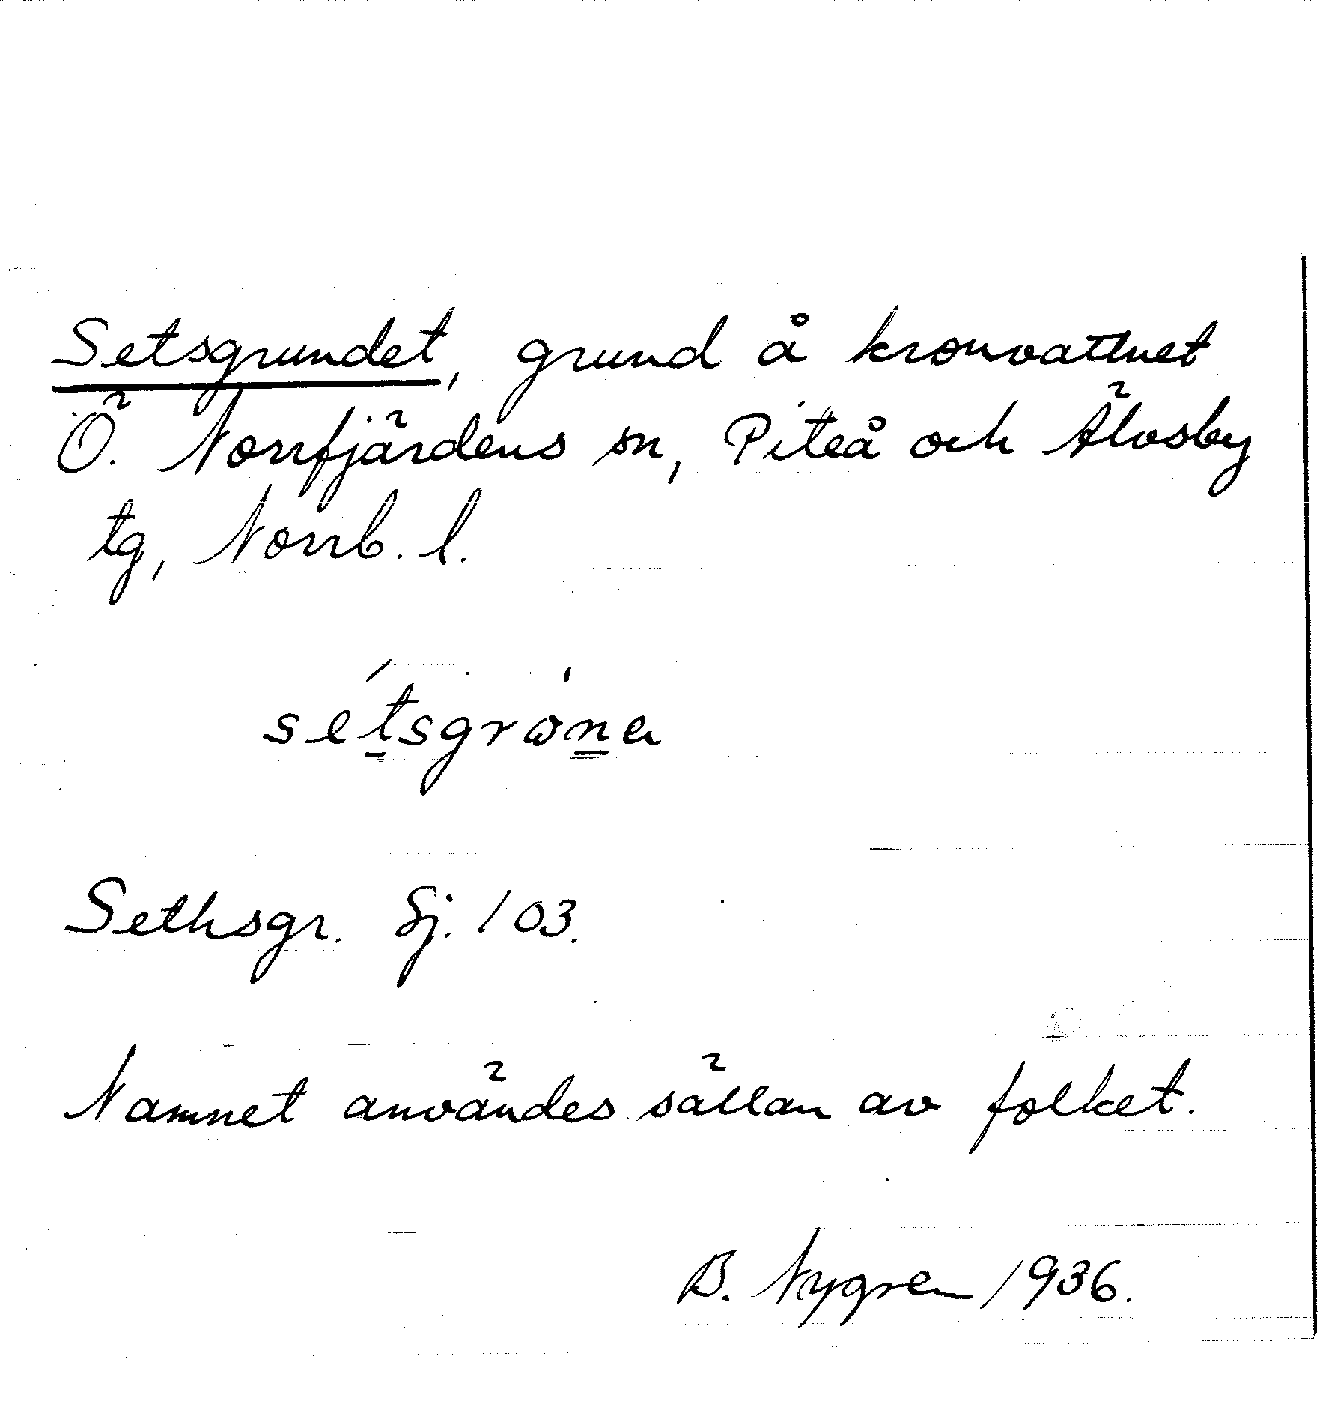 Setsgrundet, grund å kronvattnet
Ö. Norrfjärdens sn, Piteå och Älvsby
tg, Norrb. l.
sétsgrωna
Sethsgr. Sj. 103.
Namnet användes sällan av folket.
B. Nygren 1936.